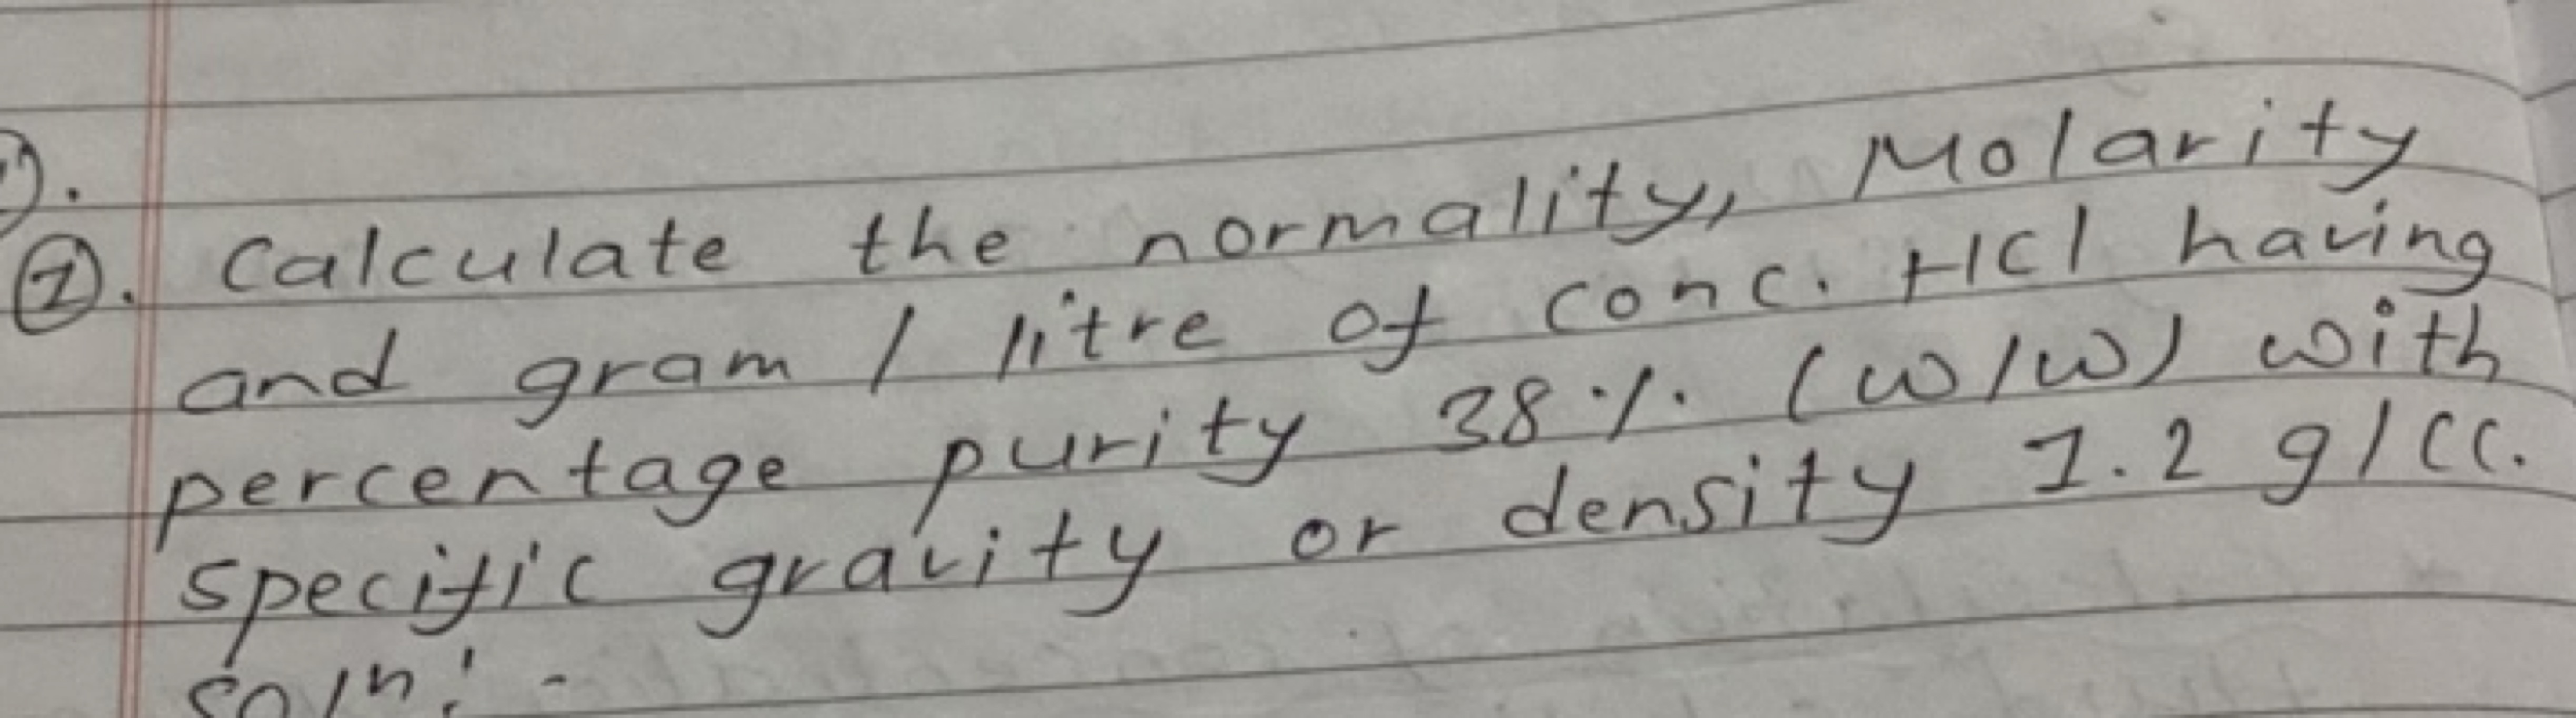 ②. Calculate the normality, Molarity
and gram / litre of conc. HCl having
percentage purity 38 % (w/w) with
specific gravity or density 1.2 g/cc.
soln: -